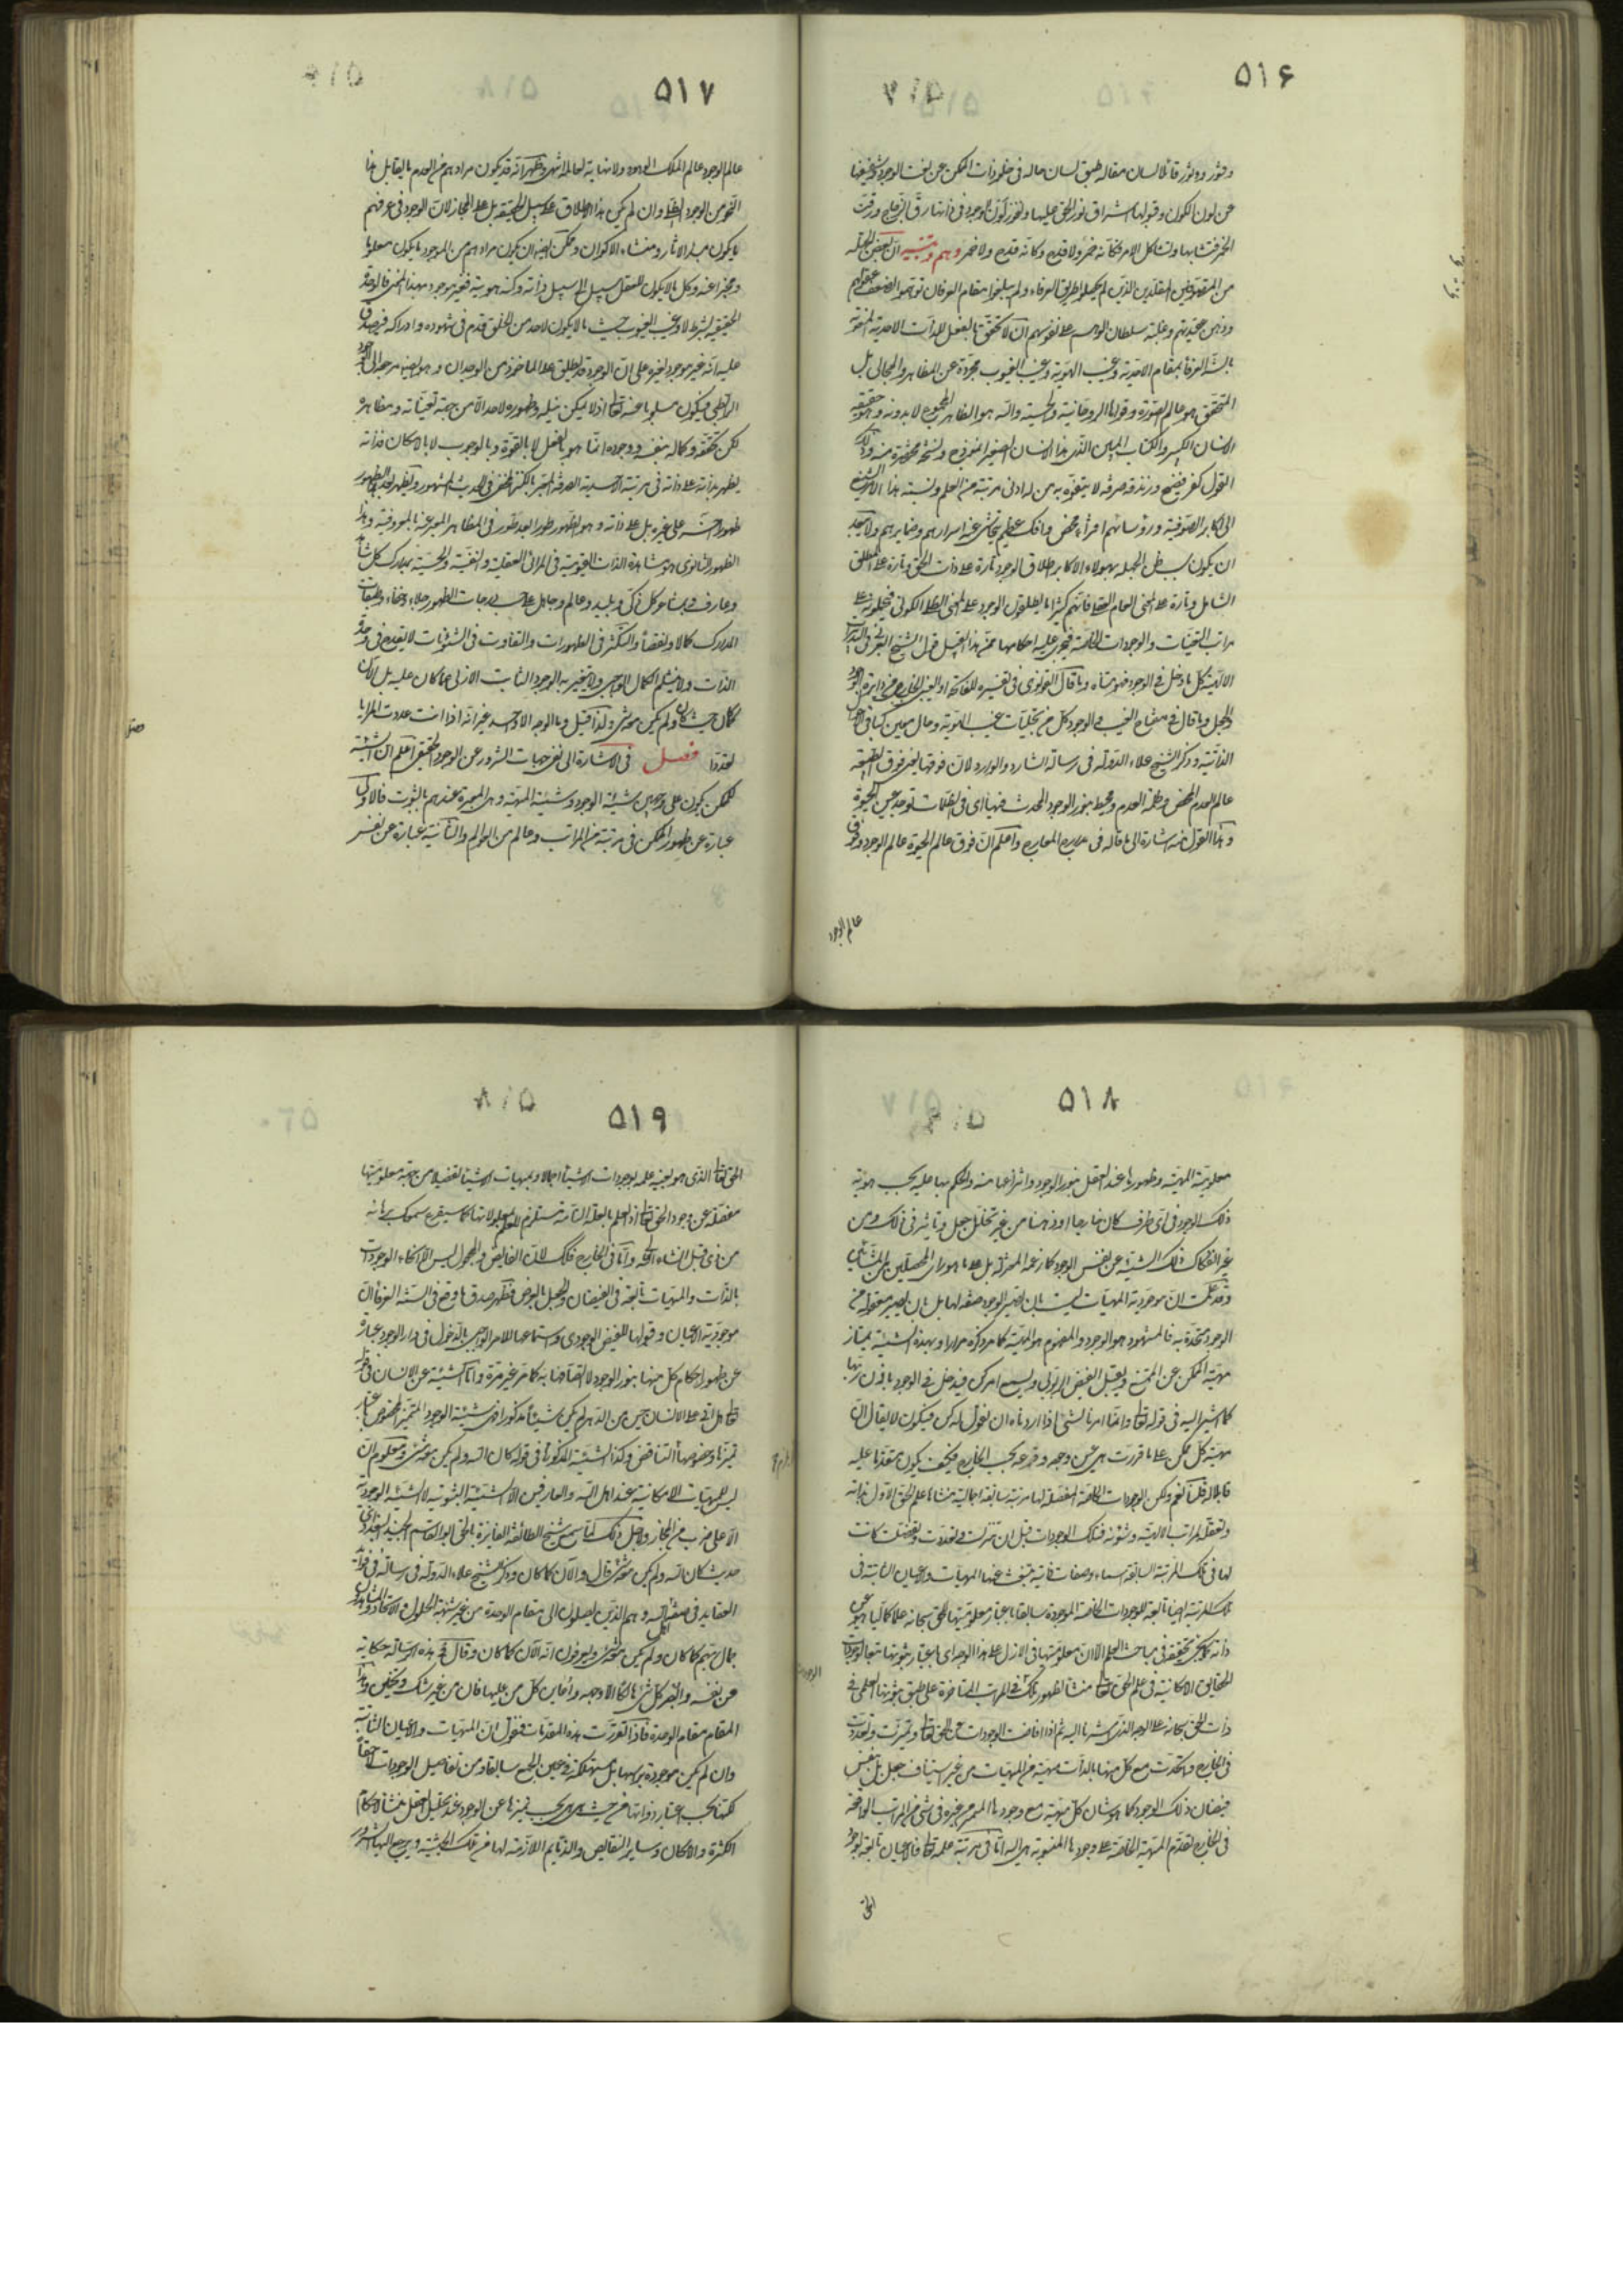 ۵۱۶
ودثوره قائلا لسان مقاله طبق لسان حاله فى خلو ذات الممكن عن نعت الوجود وتشفيعها
عن لون الكون وقبولها اشراق نور الحق عليها ونفوذ لون الوجود فى ذاتها رق الزجاج ورقت
الخمر فتشابها وتشاكل الامر فكانه خمر ولا قدح وكانه قدح ولا خمر وهم وتنبيه ان بعض الجهلة
من المتصوفين المقلدين الذين لم يحصلوا طريق العرفاء ولم يبلغوا مقام العرفان توهموا لضعف عقولهم
ووهن عقيدتهم وغلبة سلطان الوهم على نفوسهم ان لا تحقق بالفعل للذات الاحدية المنعوتة
بالسنة العرفاء بمقام الاحدية وغيب الهوية وغيب الغيوب مجردة عن المظاهر والمجالى بل
المتحقق هو عالم الصورة وقواها الروحانية والحسية والله هو الظاهر المجموع لا بدونه وهو حقيقة
الانسان الكبير والكتاب المبين الذى هذا الانسان الصغير انموذج ونسخة مختصرة منه وذلك
القول كفر فضيح وزندقة صرفة لا يتفوه به من له ادنى مرتبة من العلم ونسبة هذا الامر الشنيع
الى اكابر الصوفية ورؤسائهم افتراء محض وافك عظيم يتحاشى عنه اسرارهم وضمايرهم ولا يبعد
ان يكون سبب ظن الجهلة بهولاء الاكابر اطلاق الوجود تارة على ذات الحق وتارة على المطلق
الشامل وتارة على المعنى العام العقلى فانهم كثيرا ما يطلقون الوجود على المعنى الظلى الكونى فيحملونه على
مراتب التعينات والوجودات الخاصة فيجرى عليه احكامها فمن هذا القبيل قول الشيخ العربى فى التدبيرات
الالهية كل ما دخل فى الوجود فهو متناه وما قال القونوى فى تفسيره للفاتحة او الغيب الخارج عن دايرة الوجود
والجعل وما قال فى مفتاح الغيب والوجود كل من تجليات غيب الهوية وحال معين كباقى الاحوال
الذهنية وذكر الشيخ علاء الدولة فى رسالة الشارد والوارد لان فوقها يعنى فوق الطبيعة
عالم العدم المحض وظلمة العدم ومحيط بنور الوجود المحدث فيها اى فى الظلمات توجد عين الحيوة
وهذا القول منه اشارة الى ما قاله فى مدارج المعارج واعلم ان فوق عالم الحيوة عالم الوجود وفوق
عالم الوجود
۵۱۷
عالم الوجود عالم الملك الودود ولا نهاية لعالمه انتهى وظهر انه قد يكون مرادهم من العدم ما يقابل هذا
النحو من الوجود الظلى وان لم يكن هذا الاطلاق على سبيل الحقيقة بل على المجاز لان الوجود فى عرفهم
ما يكون مبدا الاثار ومنشاء الاكوان ويمكن ايضا ان يكون مرادهم من الموجود ما يكون معلوما
ومخبرا عنه وكل ما لا يكون للعقل سبيل الى سبيل ذاته وكنه هويته فغير موجود بهذا المعنى فالوجود
الحقيقى بشرط لا وغيب الغيوب حيث ما لا يكون لاحد من الخلق قدم فى شهوده وادراكه فيصدق
عليه انه غير موجود لغيره على ان الوجود قد يطلق على الماخوذ من الوجدان وهو ايضا مرجعه الى الوجود
الرابطى فيكون مسلوبا عنه تعالى اذ لا يمكن نيله وظهوره لاحد الا من جهة تعيناته ومظاهره
لكن تحققه وكماله بنفسه ووجوده انما هو بالفعل لا بالقوة وبالوجوب لا بالامكان فذاته
يظهر بذاته على ذاته فى مرتبة الاحدية الصرفة المعبر بالكنز المخفى فى الحديث المشهور ويظهر بعد هذا الظهور
ظهورا اخر على غيره بل على ذاته وهو الظهور طورا بعد طور فى المظاهر المعبر عنه بالمعروفية وهذا
الظهور الثانوى هو مشاهدة الذات القيومية فى المرائى العقلية والنفسية والحسية بمدارك كل شاهد
وعارف وبمشاعر كل ذكى وبليد وعالم وجاهل على حسب درجات الظهور جلاء وخفاء وطبقات
المدارك كمالا ونقصا والتكثر فى الظهورات والتفاوت فى الشئونات لا يقدح فى وحدة
الذات ولا ينثلم الكمال الواجبى ولا يتغير به الوجود الثابت الازلى عما كان عليه بل الان
كما كان حيث كان ولم يكن معه شىء ولذا قيل وما الوجه الا واحد غير انه اذا انت عددت المرايا
تعددا فصل فى الاشارة الى نفى جهات الشرور عن الوجود الحقيقى اعلم ان الشيئية
للممكن يكون على وجهين شيئية الوجود وشيئية المهية وهى المعبرة عندهم بالثبوت فالاولى
عبارة عن ظهور الممكن فى مرتبة من المراتب وعالم من العوالم والثانية عبارة عن نفس
۵۱۸
معلومية المهية وظهورها عند العقل بنور الوجود وانتزاعها منه والحكم بها عليه بحسب هوية
ذلك الوجود فى اى ظرف كان خارجا او ذهنا من غير تخلل جعل وتاثير فى ذلك ومن
غير انفكاك تلك الشيئية عن نفس الوجود كما زعمه المعتزلة بل على ما هو راى المحصلين من المشائين
وقد علمت ان موجودية المهيات ليست بان يصير الوجود صفة لها بل بان يصير معقولة من
الوجود متحدة به فالمشهود هو الوجود والمفهوم هو المهية كما مر ذكره مرارا وبهذه الشيئية يمتاز
مهية الممكن عن الممتنع ويقبل الفيض الربوبى ويسمع امر كن فيدخل فى الوجود باذن ربها
كما اشير اليه فى قوله تعالى وانما امرنا لشىء اذا اردناه ان نقول له كن فيكون لا يقال ان
مهية كل ممكن على ما قررت هى عين وجوده وفرعه بحسب الخارج فكيف يكون مقدما عليه
قابلا له قلنا نعم ولكن الوجودات الخاصة المفصلة لها مرتبة سابقة اجمالية منشاها علم الحق الاول بذاته
وتعقله لمراتب الهيته وشئونه فتلك الوجودات قبل ان تنزلت وتعددت وتفصلت كانت
لها فى تلك المرتبة السابقة اسماء وصفات ذاتية ينبعث عنها المهيات والاعيان الثابتة فى
تلك المرتبة ايضا تابعة للوجودات الخاصة الموجودة سابقا باعتبار معلوميتها للحق سبحانه علما كماليا هو عين
ذاته كما سيجىء تحقيقه فى مباحث العلم الا ان معلوميتها فى الازل على هذا الوجه اى باعتبار ثبوتها تبعا لوجودات
الحقايق الامكانية فى علم الحق تعالى منشا لظهور تلك فى المراتب المتاخرة على طبق ثبوتها العلمى فى
ذات الحق سبحانه على الوجه الذى اشرنا اليه ثم اذا فاضت الوجودات عن الحق تعالى وتميزت وتعددت
فى الخارج واتحدت مع كل منها بالذات مهية من المهيات من غير استيناف جعل بل بنفس
فيضان ذلك الوجود كما هو شان كل مهية مع وجودها المتميز عن غيره فى شىء من المراتب الواقعة
فى الخارج تقدم المهية الخاصة على وجودها المنسوبة هى اليه اما فى مرتبة علمه تعالى فالاعيان تابعة لوجود
الحق
۵۱۹
الحق تعالى الذى هو بعينه علمه بوجودات الاشياء اجمالا وبمهيات الاشياء تفصيلا من جهة معلوميتها
مفصلة عن وجود الحق تعالى اذ العلم بالعلة التامة مستلزم للعلم بمعلولاتها كما سيقرع سمعك برهانه
من ذى قبل انشاء الله واما فى الخارج فكذلك لان الفايض والمجعول ليس الا انحاء الوجودات
بالذات والمهيات تابعة فى الفيضان والجعل بالعرض فظهر صدق ما وقع فى السنة العرفاء ان
موجودية الاعيان وقبولها للفيض الوجودى واستماعها للامر الواجبى بالدخول فى دار الوجود عبارة
عن ظهور احكام كل منها بنور الوجود لا اتصافها به كما مر غير مرة واما الشيئية عن الانسان فى قوله
تعالى هل اتى على الانسان حين من الدهر لم يكن شيئا مذكورا هى شيئية الوجود المتميز المخصوص باعتبار
تميزها وخصوصها لئلا التناقض وكذا الشيئية المذكورة فى قوله كان الله ولم يكن معه شىء ومعلوم ان
ليس للمهيات الامكانية عند اهل الله والعارفين الا الشيئية الثبوتية لا الشيئية الوجودية
الا على ضرب من المجاز ولاجل ذلك لما سمع شيخ الطائفة الفائزة بالحق ابو القاسم الجنيد البغدادى
حديث كان الله ولم يكن معه شىء قال والان كما كان وذكر الشيخ علاء الدولة فى رسالة فى فوائد
العقايد فى صفة اهل الله وهم الذين يصلون الى مقام الوحدة من غير شبهة الحلول والاتحاد والمشاهدون
جمال ربهم كما كان ولم يكن معه شىء ويعرفون انه الان كما كان وقال فى هذه الرسالة حكاية
عن نفسه وابصر كل شىء هالكا الا وجهه واعاين كل من عليها فان من غير شك وتخمين وهذا
المقام مقام الوحدة فاذا تقررت هذه المقدمات فنقول ان المهيات والاعيان الثابتة
وان لم تكن موجودة براسها بل مستهلكة فى عين الجمع سابقا وفى تفاصيل الوجودات لاحقا
لكنها بحسب اعتبار ذواتها من حيث هى هى بحسب تميزها عن الوجود عند تحليل العقل منشا الاحكام
الكثرة والامكان وساير النقايص والذمايم اللازمة لها من تلك الحيثية ويرجع اليها الشرور